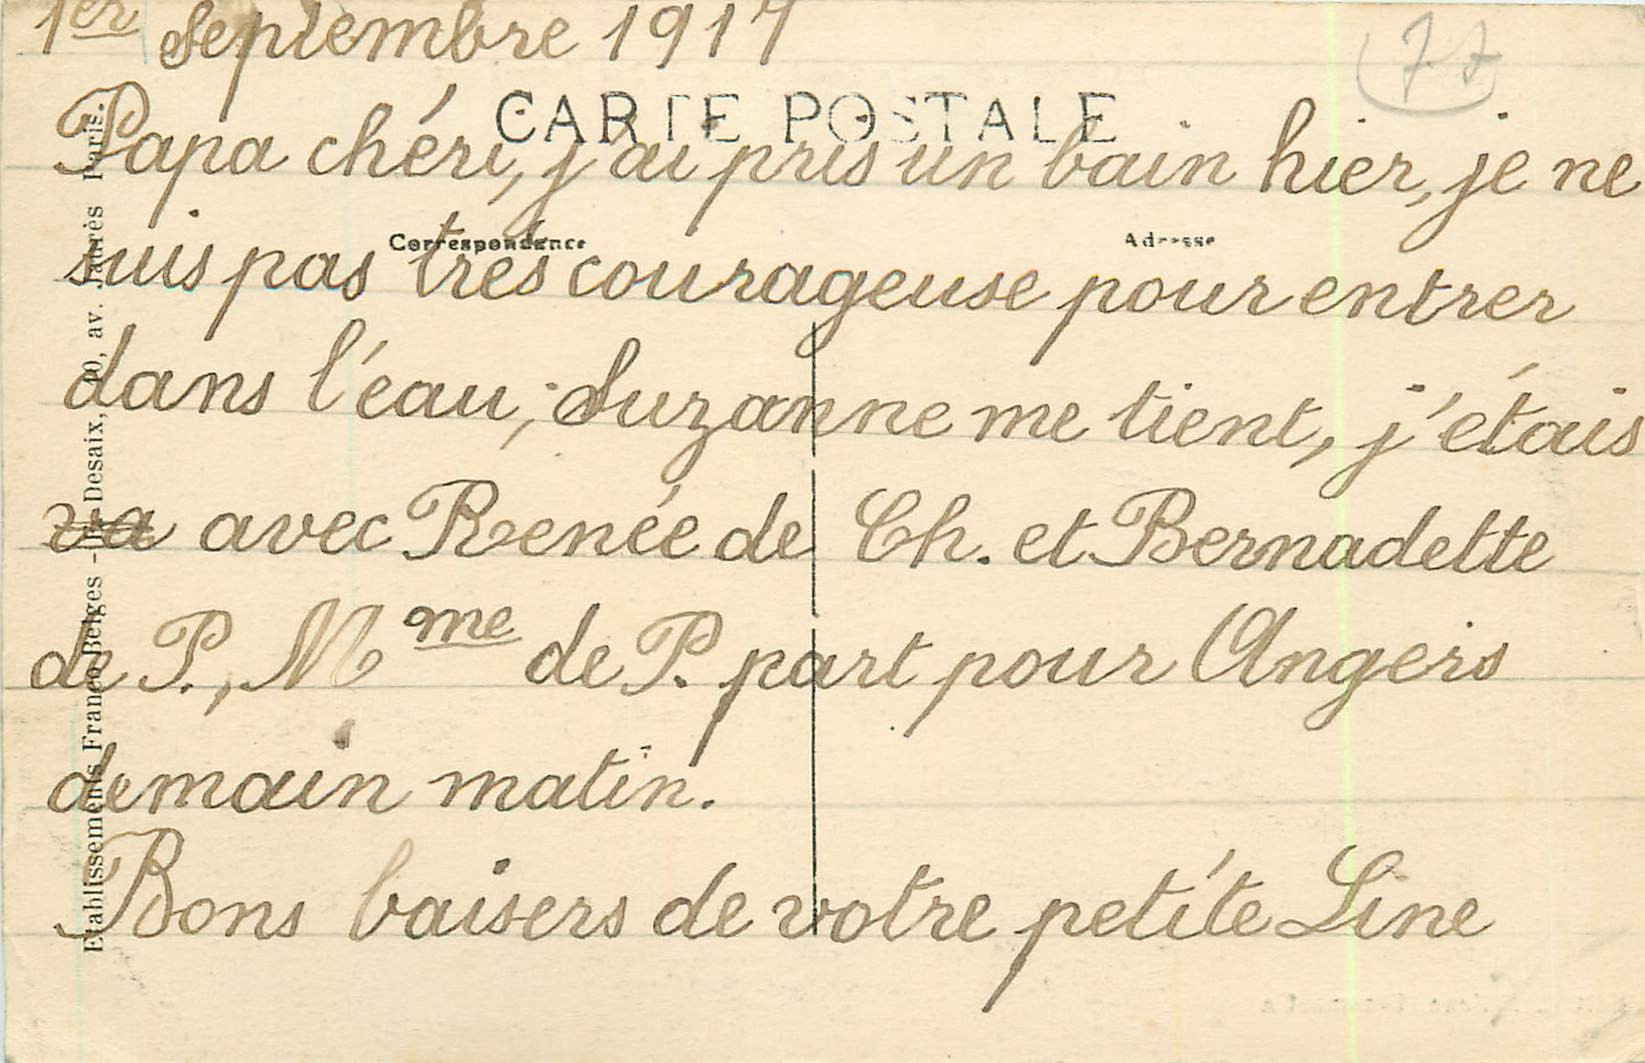 1er Septembre 1917
77
CARTE POSTALE
Papa chéri, j'ai pris un bain hier, je ne
Correspondance
Adresse
suis pas très courageuse pour entrer
dans l'eau, Suzanne me tient, j'étais
va avec Renée de Ch. et Bernadette
de P., Mme de P. part pour Angers
demain matin.
Bons baisers de votre petite Line
Etablissements Franco-Belges - Desaix, 10, av. Jaurès Paris.